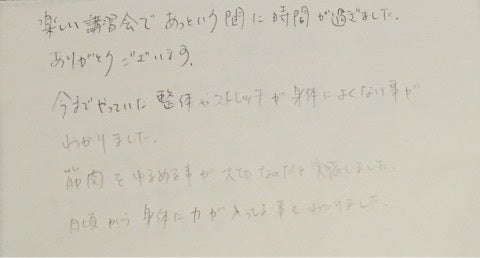 楽しい講習会であっという間に時間が過ぎました。
ありがとうございます。
今までやっていた整体やストレッチが身体によくない事が
わかりました。
筋肉をゆるめる事が大切なのだと実感しました。
日頃から身体に力が入ってる事もわかりました。